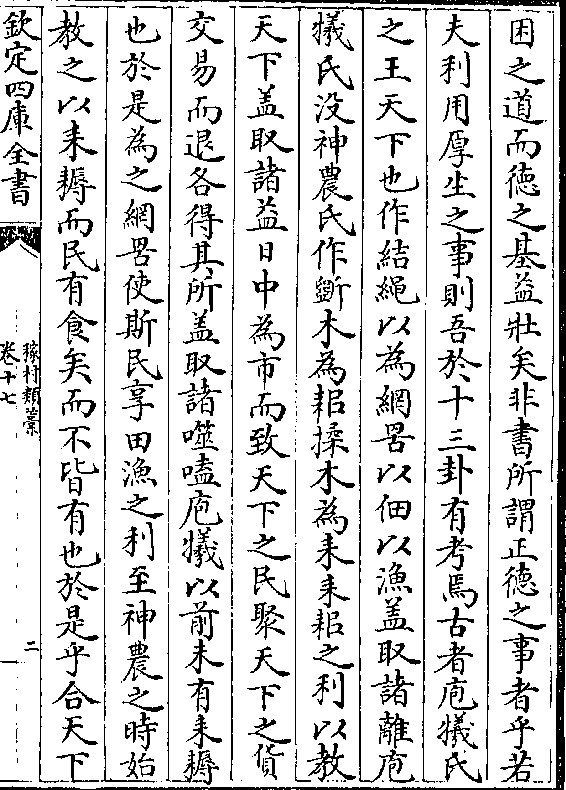 困之道而徳之基益壯矣非書所謂正徳之事者乎若
夫利用厚生之事則吾於十三卦有考焉古者庖犧氏
之王天下也作結繩以為網罟以佃以漁盖取諸離庖
犧氏没神農氏作斵木為耜揉木為耒耒耜之利以教
天下盖取諸益日中為市而致天下之民聚天下之貨
交易而退各得其所盖取諸噬嗑庖犧以前未有耒耨
也於是為之網罟使斯民享田漁之利至神農之時始
教之以耒耨而民有食矣而不皆有也於是乎合天下
欽定四庫全書
稼村類藁
卷十七
二